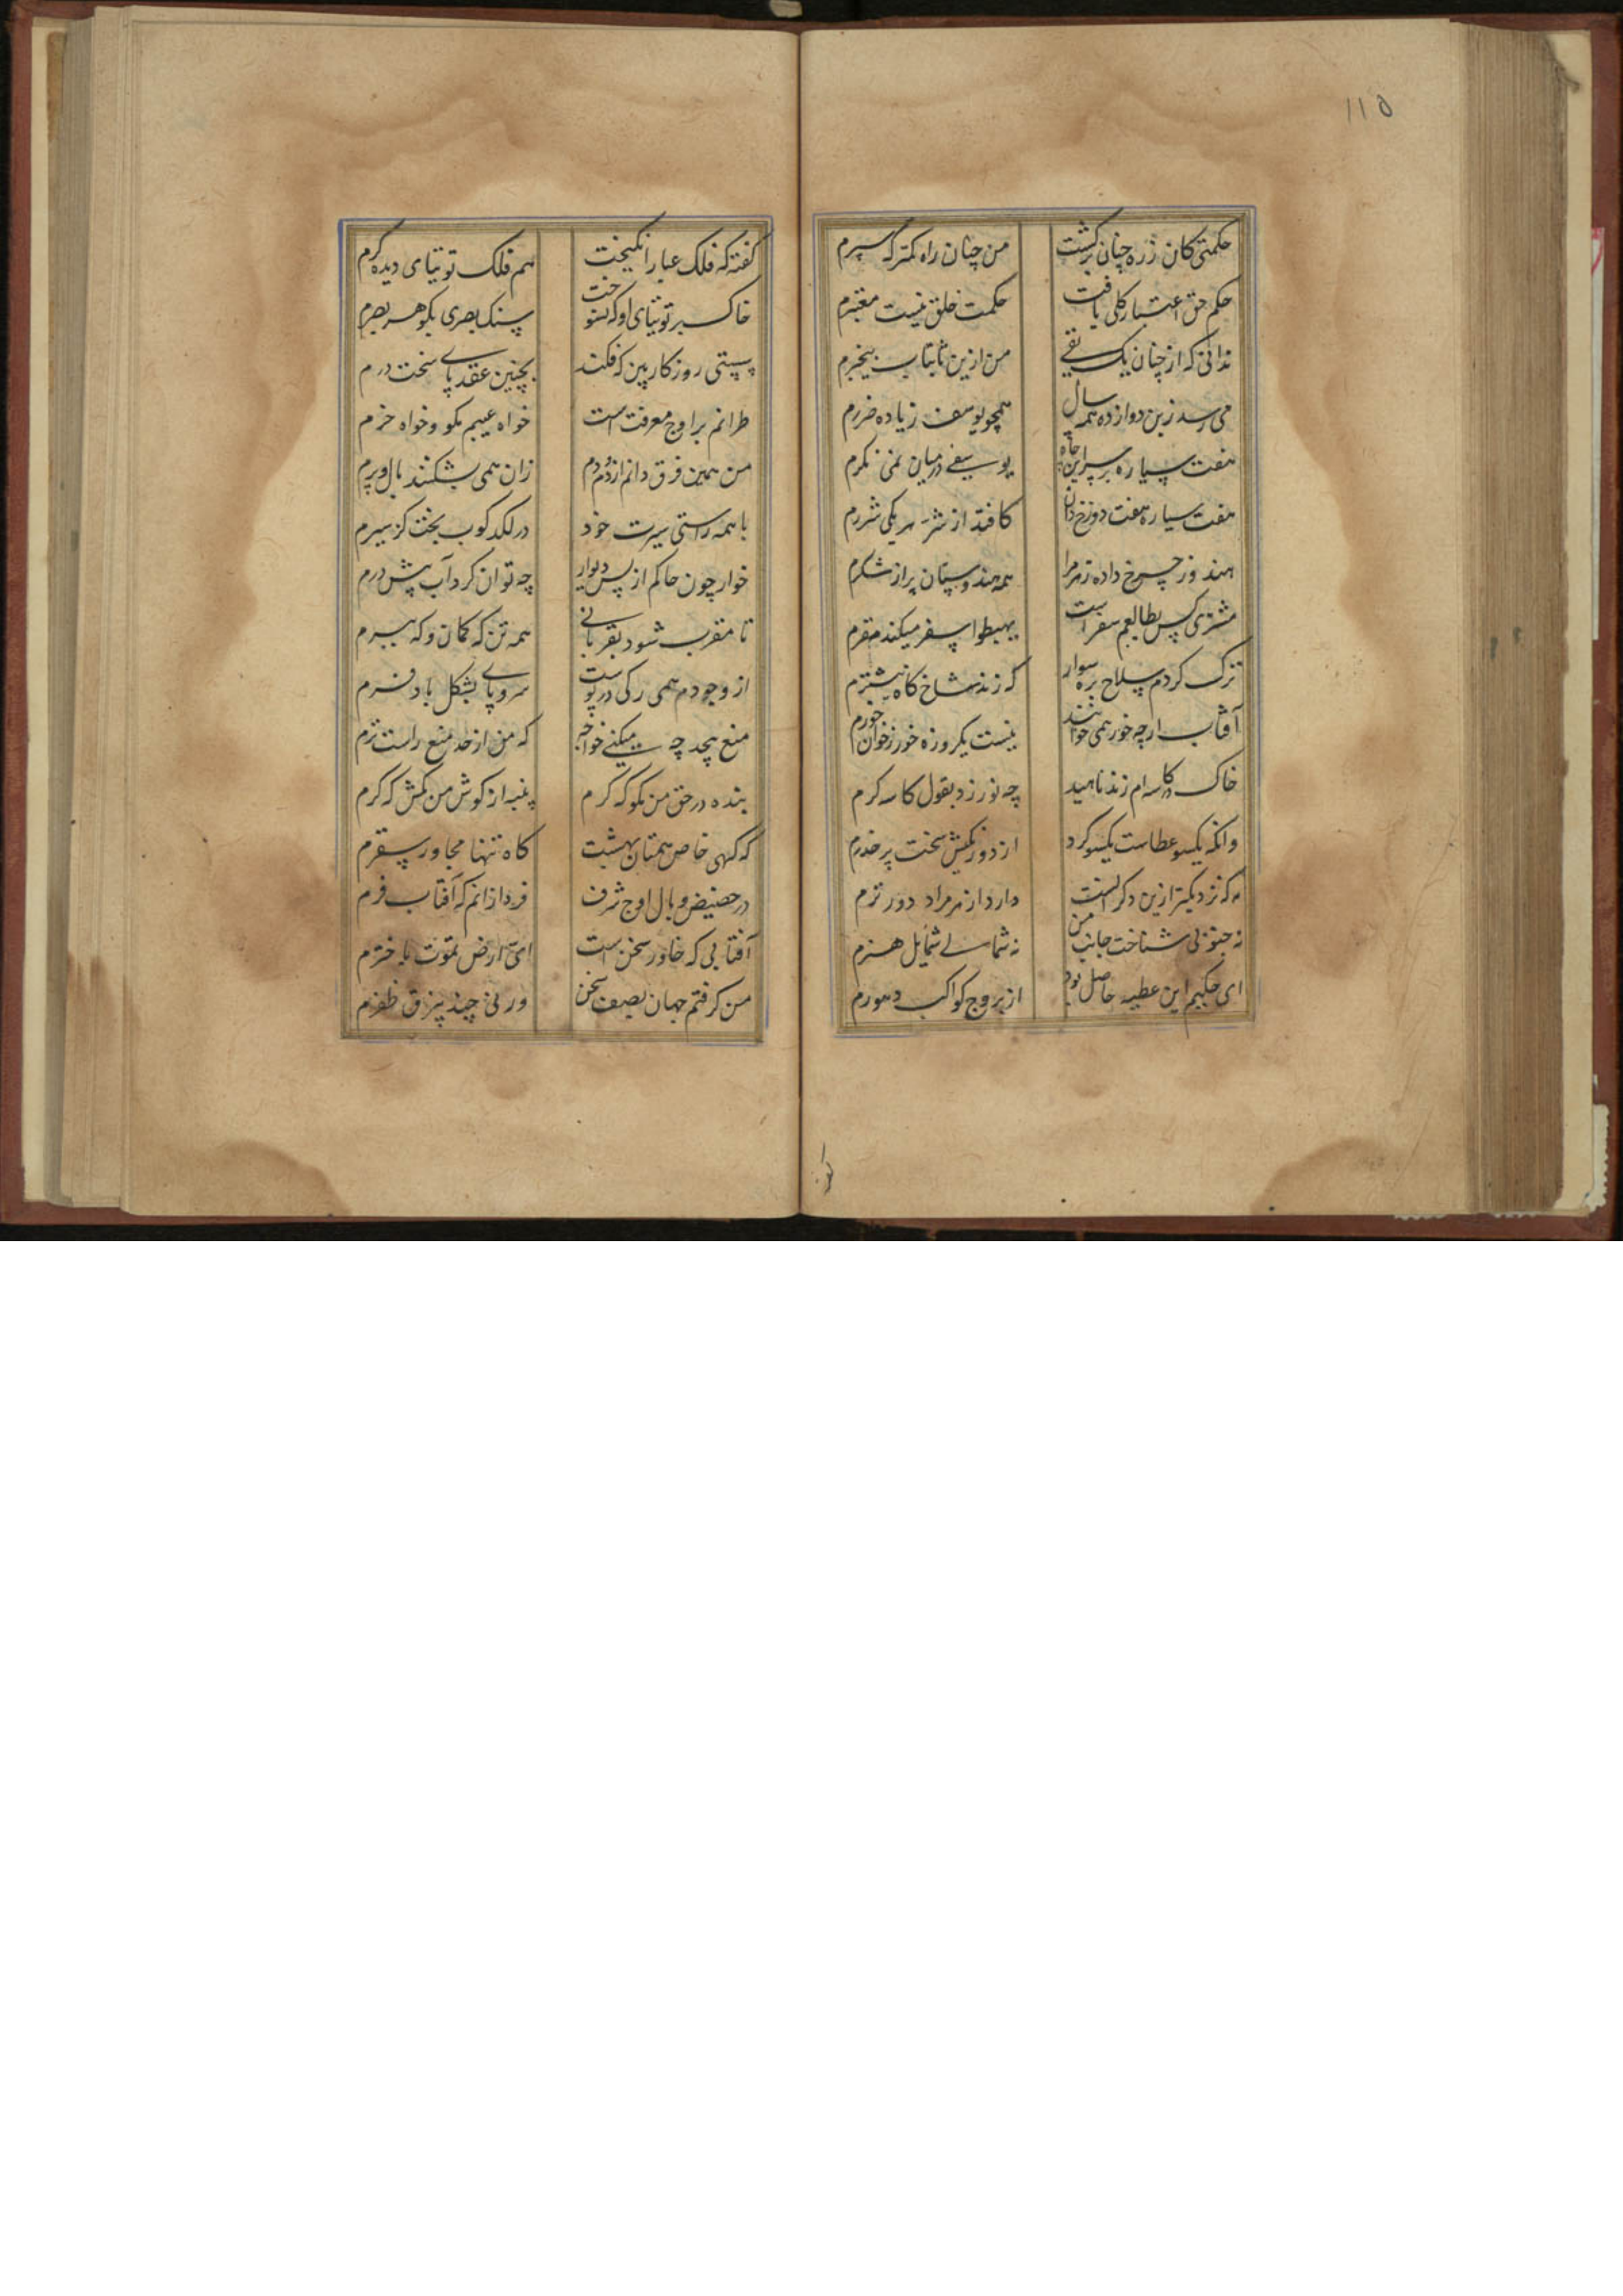 ۱۱۵
حکمتی کان زره چنان برگشت من چنان راه کمترک سپرم
حکم حق اعتبار کلی یافت حکمت خلق نیست معتبرم
ندانی که از چنان یک من ازین ثابتات بیخبرم
می رسد زین دوازده همه سال همچو یوسف زیاده ضررم
هفت سیاره بر سر این چاه یوسفی در میان نمی نگرم
هفت سیاره هفت دوزخ دان کافتد از شر هر یکی شررم
هندو ز چرخ داده زهر مرا همه هندوستان پر از شکرم
مشتری کس بطالعم سفر است یهبطوا سفر میکند مقرم
ترک کردم سلاح بره سوار که زند شاخ گاه نیشترم
آفتاب ارچه خور همی خوانند نیست یکروزه خور ز خوان خورم
خاک در کاسه ام زند ناهید چه نورزد بقول کاسه گرم
وانکه یکسو عطاست یکسو کرد از دور نکش سخت پر حذرم
مه که نزدیکتر ازین دگر است دارد از هر مراد دورترم
نه جنوبی شناخت جانب من نه شمالی شمایل هنرم
ای حکیم این عطیه حاصل بود از بروج کواکب و صورم
کفته
گفته که فلک غبار انگیخت هم فلک توتیای دیده گرم
خاک بر توتیای او که نسوخت سنک بصری بگوهر بصرم
پستی روزکار بین که فکند بچنین عقد پای سخت درم
طرانم بر اوج معرفت است خواه عیبم مگو و خواه خرم
من همین فرق دانم از دم دم زان همی بشکنند بال و پرم
با همه راستی سیرت خود در لکدکوب بخت کژ سیرم
خوار چون خاکم از پس دیوار چه توان کرد آب پیش درم
تا مقرب شود بقربانی همه تن که کمان و که سپرم
از وجودم همی رگی در پوست سر و پای بشکل باد فرم
منع بیحد چه میکنی خواجه که من از حد منع راست ترم
بنده در حق من مگو که کرم پنبه از گوش من مکش که کرم
که کهی خاص همتان بهشت گاه تنها مجاور سقرم
در حضیض و بال اوج شرف فرد ازانم که آفتاب فرم
آفتابی که خاور سخن است ای ارض تموت باخترم
من گرفتم جهان بصیف سخن ور نی چند بیزق ظفرم